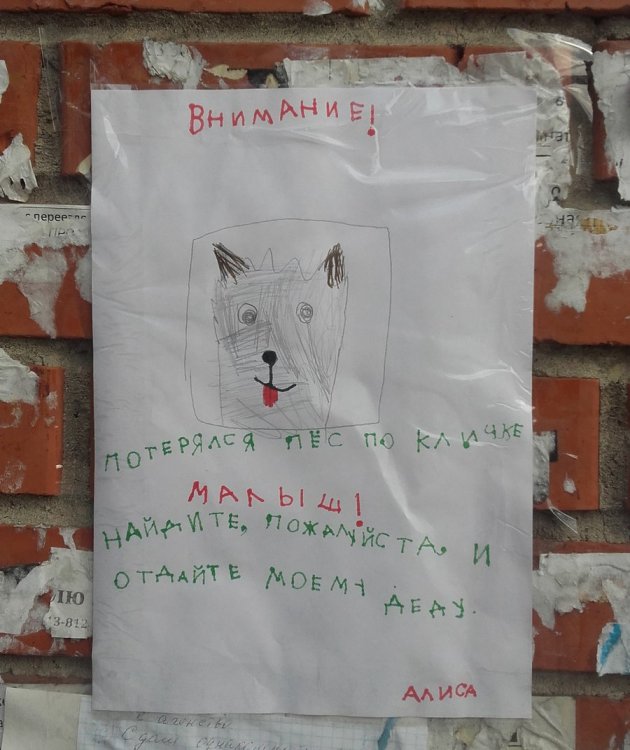 ВНИМАНИЕ!
ПОТЕРЯЛСЯ ПЁС ПО КЛИЧКЕ
МАЛЫШ!
НАЙДИТЕ, ПОЖАЛУЙСТА, И
ОТДАЙТЕ МОЕМУ ДЕДУ.
АЛИСА